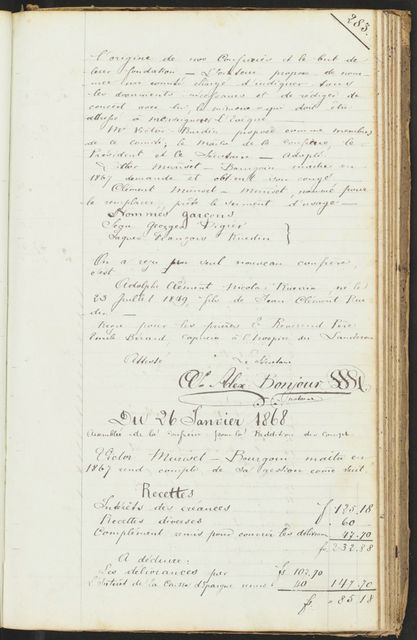 283.
l'origine de nos Confréries et le but de
leur fondation — L'auteur propose de nom-
mer un comité chargé d'indiquer tous
les documents nécessaires et de rédiger de
concert avec lui le mémoire qui doit être
adressé à Monseigneur l'Evêque —
Mr Victor Ruedin propose comme membres
de ce comité, le Maître de la Confrérie, le
Président et le Secrétaire — Adopté
Victor Muriset - Bourgoin maître en
1867 demande et obtient son congé
Clément Muriset - Muriset nommé pour
le remplacer, prête le serment d'usage —
Nommés garçons
Jean Georges Digier
Jaques François Ruedin
On a reçu un seul nouveau confrère,
c'est
Adolphe Clément Nicolas Ruedin, né le
23 Juillet 1849 fils de Jean Clément Rue-
din —
Reçu pour les prières le Révérend Père
Emile Bérard, capucin à l'hospice du Landeron
Atteste Le Secrétaire
Alex Bonjour
Du 26 Janvier 1868
Assemblée de la Confrérie pour la Reddition des Comptes
Victor Muriset - Bourgoin maître en
1867 rend compte de sa gestion come suit
Recettes
Intérêts des créances f. 125.18
Recettes diverses " 60
Complément remis pour couvrir les délivran. " 47.70
fr. 232.88
A déduire:
Les délivrances par fr. 107.70
L'intérêt de la Caisse d'épargne remis " 40 147.70
fr. 85.18